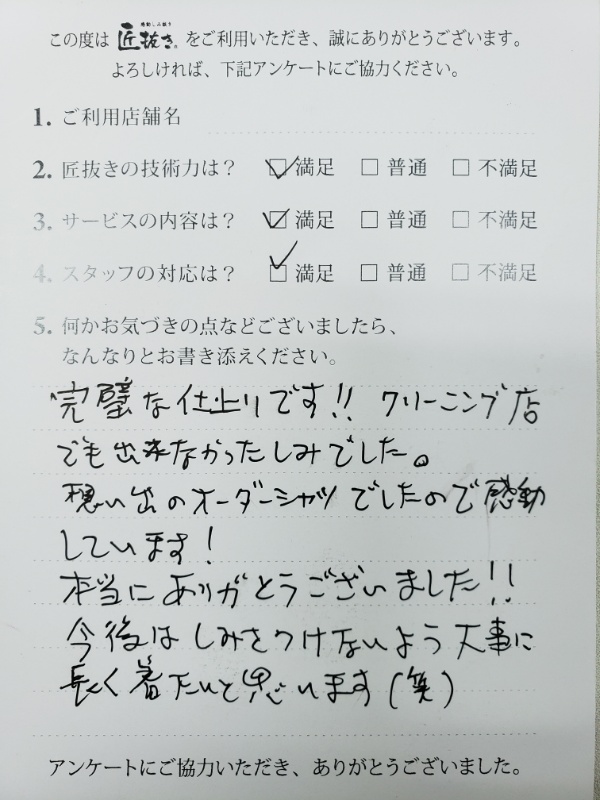 この度は 感動しみ抜き 匠抜き® をご利用いただき、誠にありがとうございます。
よろしければ、下記アンケートにご協力ください。
1. ご利用店舗名
2. 匠抜きの技術力は? ☑満足 □普通 □不満足
3. サービスの内容は? ☑満足 □普通 □不満足
4. スタッフの対応は? ☑満足 □普通 □不満足
5. 何かお気づきの点などございましたら、
なんなりとお書き添えください。
完璧な仕上りです!! クリーニング店
でも出来なかったしみでした。
想い出のオーダーシャツでしたので感動
しています!
本当にありがとうございました!!
今後はしみをつけないよう大事に
長く着たいと思います(笑)
アンケートにご協力いただき、ありがとうございました。